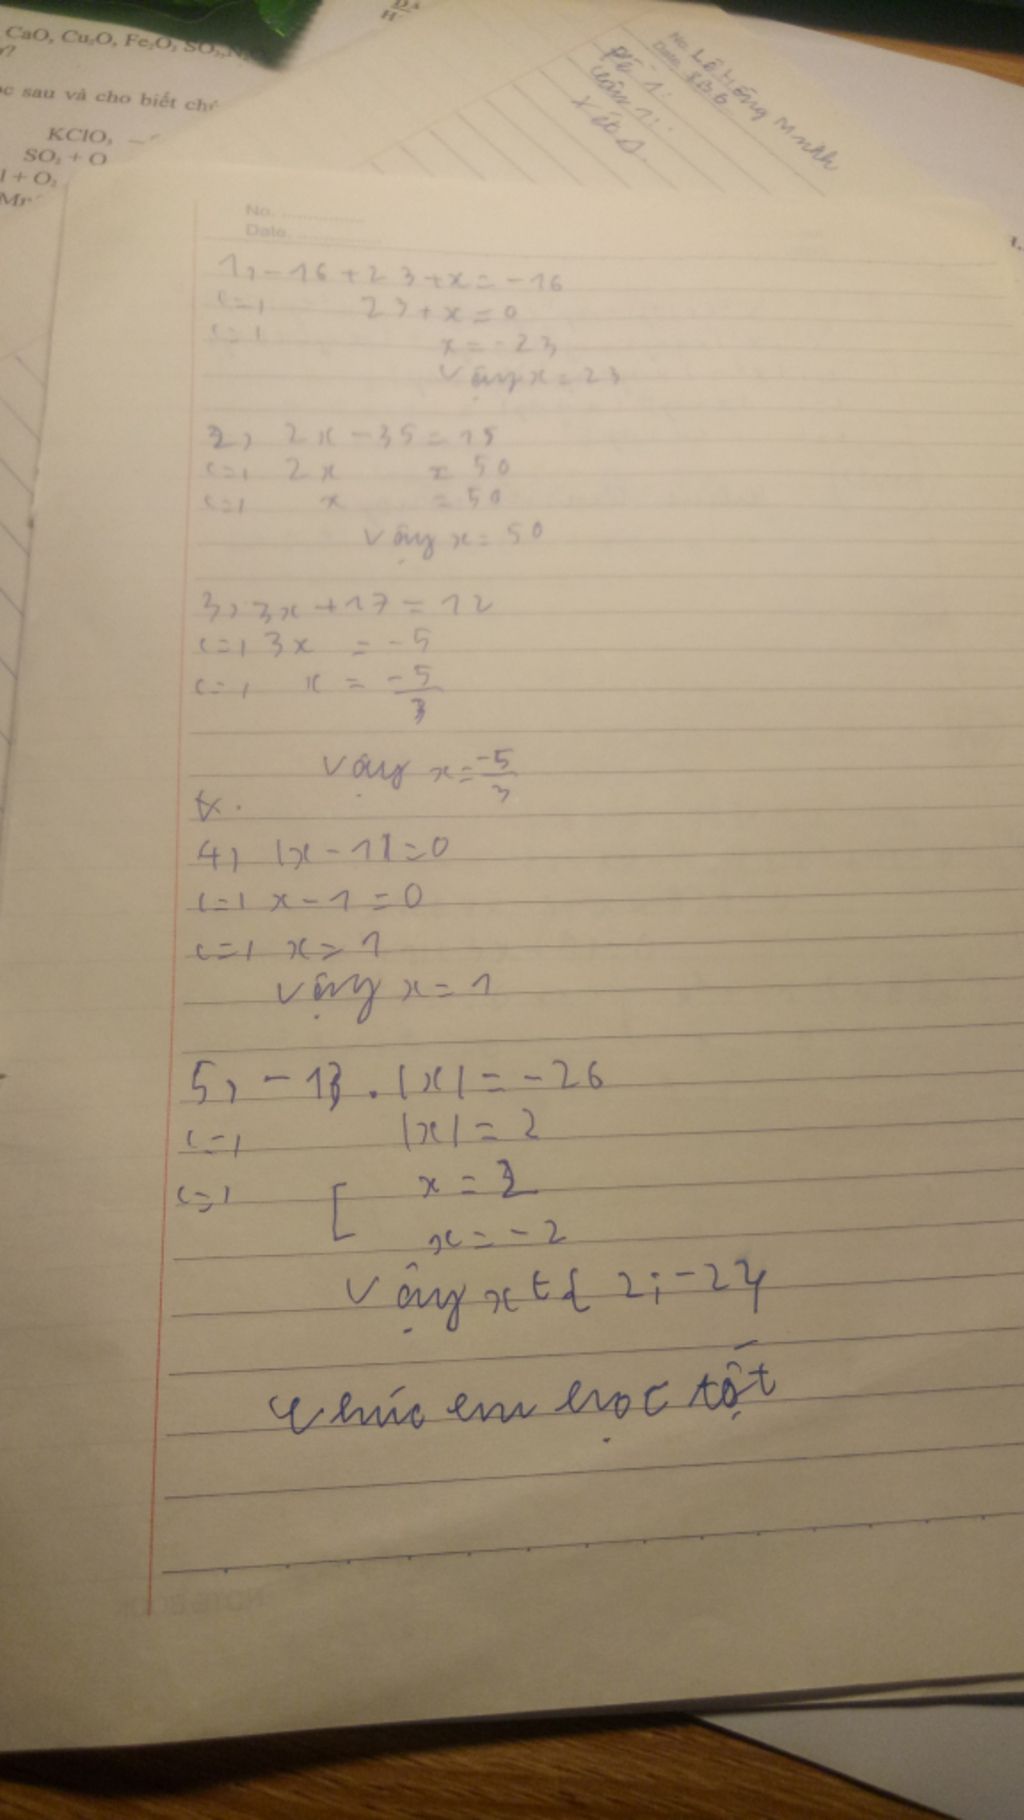 CaO, Cu₂O, Fe₂O₃, SO₂,
c sau và cho biết
KClO₃
SO₂ + O
l + O₂
DA
H
No. Lê Hồng Minh
Date 8B6
Đề 1:
Câu 1:
No. ...............
Date. ...............
1, -16 + 23 + x = -16
<=> 23 + x = 0
<=> x = -23
Vậy x = 23
2, 2x - 35 = 15
<=> 2x = 50
<=> x = 50
Vậy x = 50
3, 3x + 17 = 12
<=> 3x = -5
<=> x = -5/3
Vậy x = -5/3
4, |x - 1| = 0
<=> x - 1 = 0
<=> x = 1
Vậy x = 1
5, -13 . |x| = -26
<=> |x| = 2
<=> [ x = 2
x = -2
Vậy x ∈ { 2 ; -2 }
Chúc em học tốt